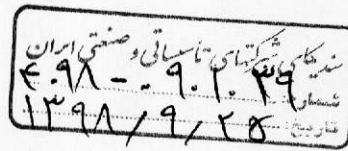 سندیکای شرکتهای تاسیساتی و صنعتی ایران
شماره: ۴۰۹۸ - ۰۹۰۱۰۳۹
تاریخ: ۱۳۹۸/۹/۲۵